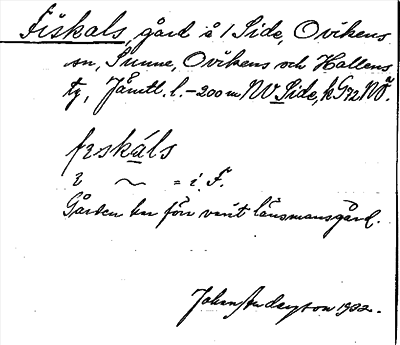 Fiskals, gård å / Side, Ovikens
sn, Sunne, Ovikens och Hallens
tg, Jämtl. l. – 200 m NV Side, k G72 NÖ.
fɪskáls
ɪ ~ = i F.
Gården har förr varit länsmansgård.
Johan Anderzson 1932.